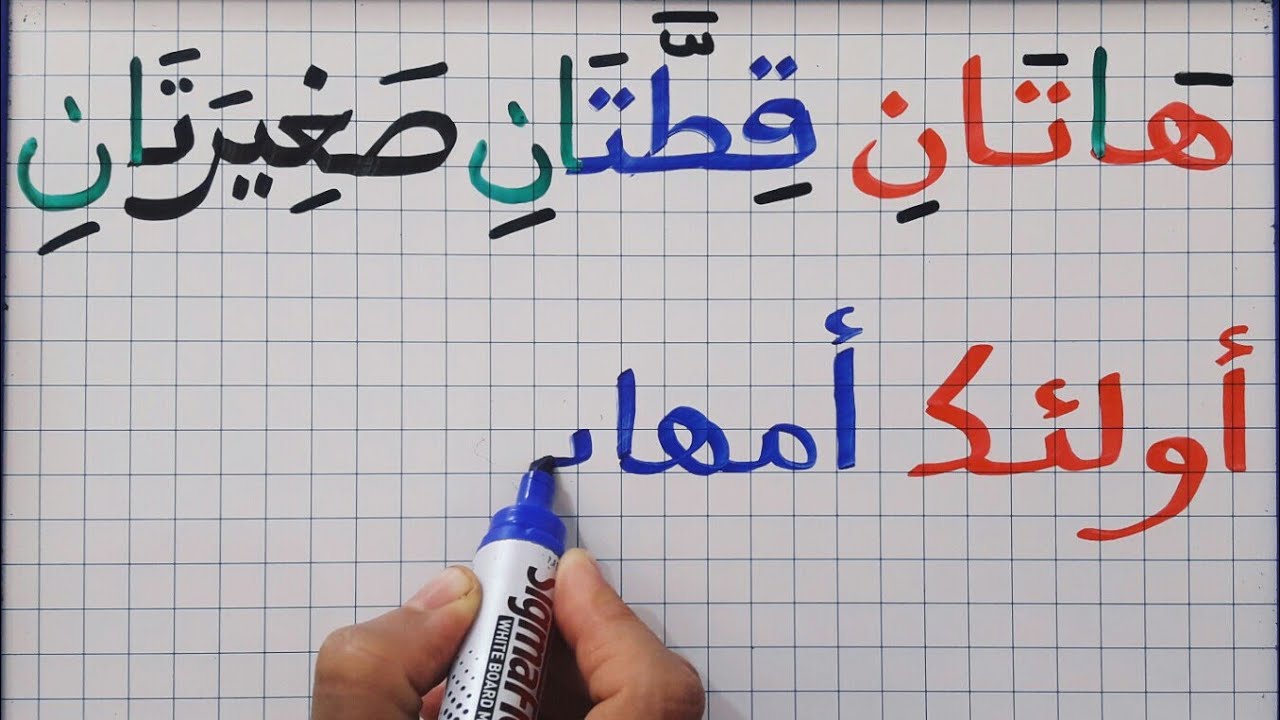 هَاتَانِ قِطَّتَانِ صَغِيرَتَانِ
أولئك
WHITE BOARD M